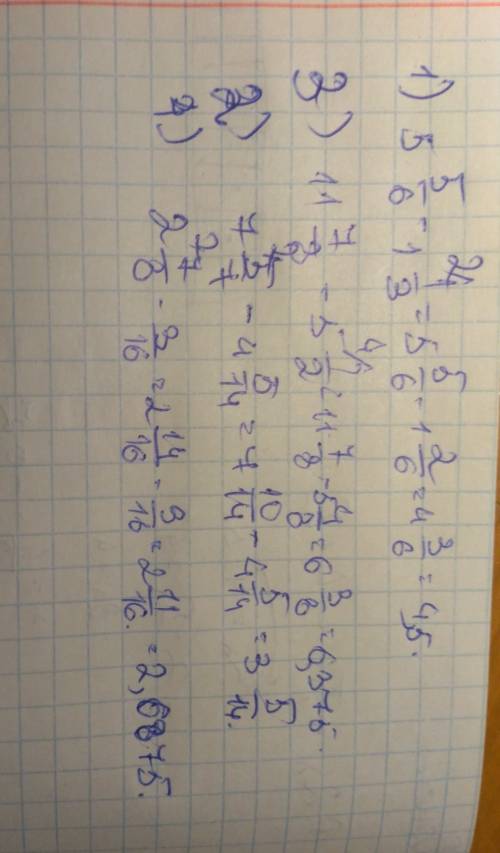 1) 5 5/6 - 1 1/3 = 5 5/6 - 1 2/6 = 4 3/6 = 4,5.
3) 11 7/8 - 5 1/2 = 11 7/8 - 5 4/8 = 6 3/8 = 6,375.
2) 7 5/7 - 4 5/14 = 7 10/14 - 4 5/14 = 3 5/14.
4) 2 7/8 - 3/16 = 2 14/16 - 3/16 = 2 11/16. = 2,6875.